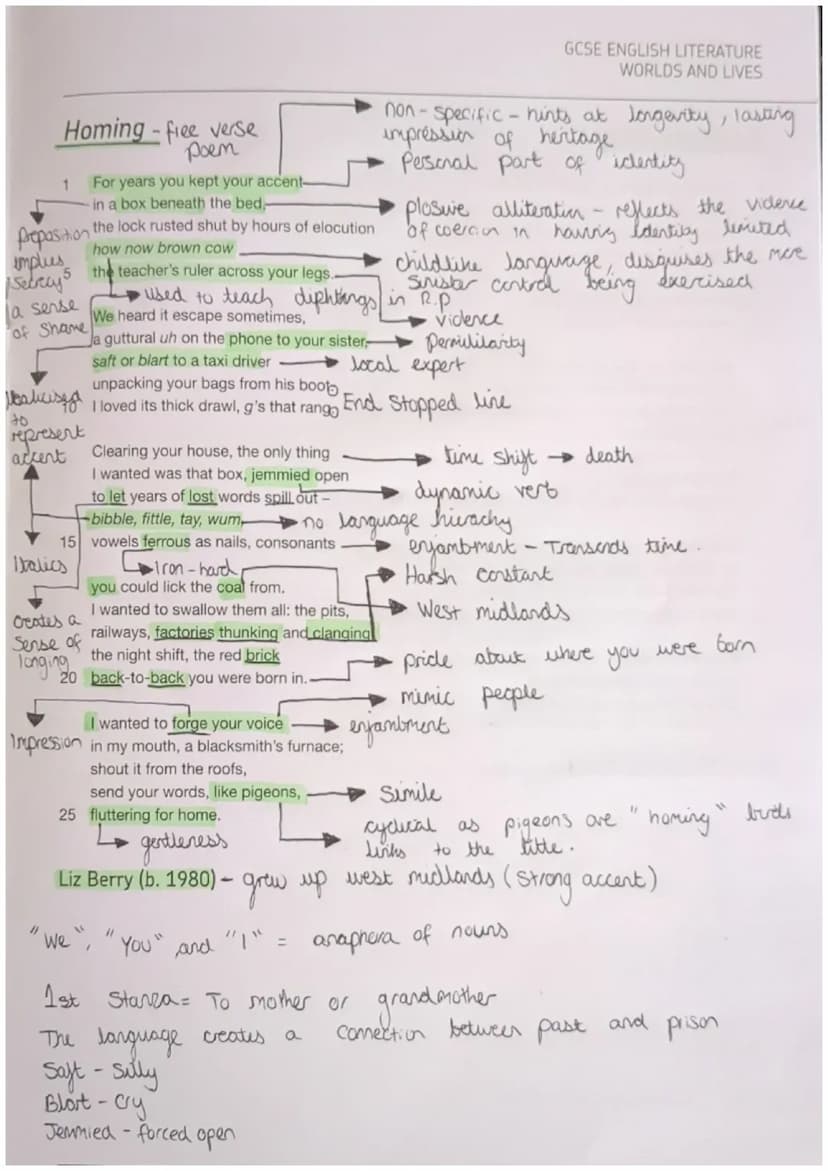 GCSE ENGLISH LITERATURE
WORLDS AND LIVES
Homing - free verse
poem
non-specific - hints at longevity, lasting
impression of heritage
Personal part of identity
1 For years you kept your accent
in a box beneath the bed,
the lock rusted shut by hours of elocution
how now brown cow
5 the teacher's ruler across your legs.
Preposition
implies
secrecy
a sense
of shame
plosive alliteration - reflects the violence
of coercion in having identity limited
childlike language, disguises the more
sinister control being exercised
used to teach diphtings in R.P
violence
We heard it escape sometimes,
a guttural uh on the phone to your sister,
saft or blart to a taxi driver
unpacking your bags from his boot,
10 I loved its thick drawl, g's that rang.
local expert
End Stopped line
Italicised
to
represent
accent
Clearing your house, the only thing
I wanted was that box, jemmied open
to let years of lost words spill out –
bibble, fittle, tay, wum,
15 vowels ferrous as nails, consonants
time shift → death
dynamic verb
no language hierachy
enjambment - Transends time.
Italics
Iron-hard
Harsh constant
West midlands
you could lick the coal from.
I wanted to swallow them all: the pits,
railways, factories thunking and clanging
the night shift, the red brick
20 back-to-back you were born in.
creates a
Sense of
longing
pride about where you were born
mimic people
I wanted to forge your voice
in my mouth, a blacksmith's furnace;
shout it from the roofs,
send your words, like pigeons,
25 fluttering for home.
Impression
enjambment
Simile
gentleness
cyclical as pigeons are "homing" birds
links to the title.
Liz Berry (b. 1980) - grew up west midlands (Strong accent)
"We", "You" and "I" = anaphora of nouns
1st Stanza = To mother or grandmother
The language creates a connection between past and prison
Saft - Silly
Blart - Cry
Jemmied - forced open